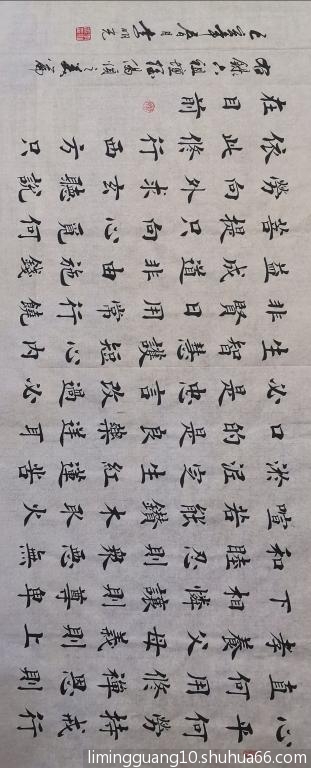 心平何勞持戒行
直何用修禪恩則
孝養父母義則上
下相憐讓則尊卑
和睦忍則衆惡無
喧若能鑽木取火
淤泥定生紅蓮苦
口的是良藥逆耳
必是忠言改過必
生智慧護短心內
非賢日用常行饒
益成道非由施錢
菩提只向心覓何
勞向外求玄聽說
依此修行西方只
在目前
右錄六祖壇經偈頌之美篇
己亥年春月李明光
limingguang10.shuhua66.com